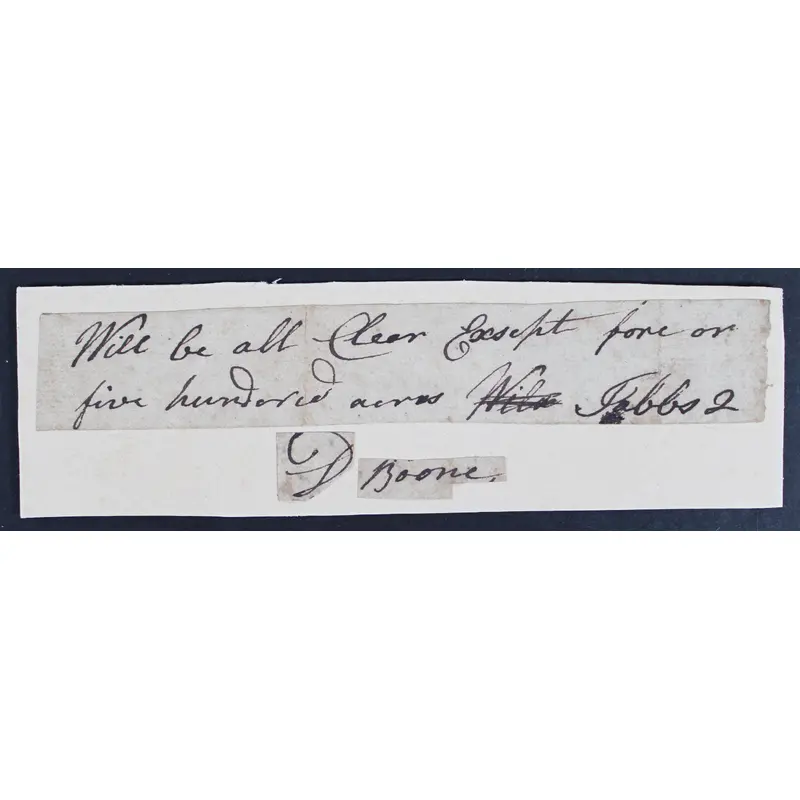 Will be all Clear Exsept fore or
five hundered acres Will Tabbs 2
D Boone.